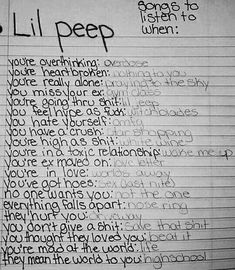 songs to
listen to
when:
Lil peep
you're overthinking: overdose
you're heartbroken: nothing to you
you're really alone: praying to the sky
you miss your ex: gym class
you're going thru shit: lil jeep
you feel hype as fuck: witchblades
you hate yourself: omfg
you have a crush: star shopping
you're high as shit: white wine
you're in a toxic relationship: wake me up
your ex moved on: love letter
you're in love: worlds away
you've got hoes: sex last nite
no one wants you: not the one
everything falls apart: nose ring
they hurt you: driveway
you don't give a shit: save that shit
you thought they loved you: beat it
you're mad at the world: life
they mean the world to you: highschool